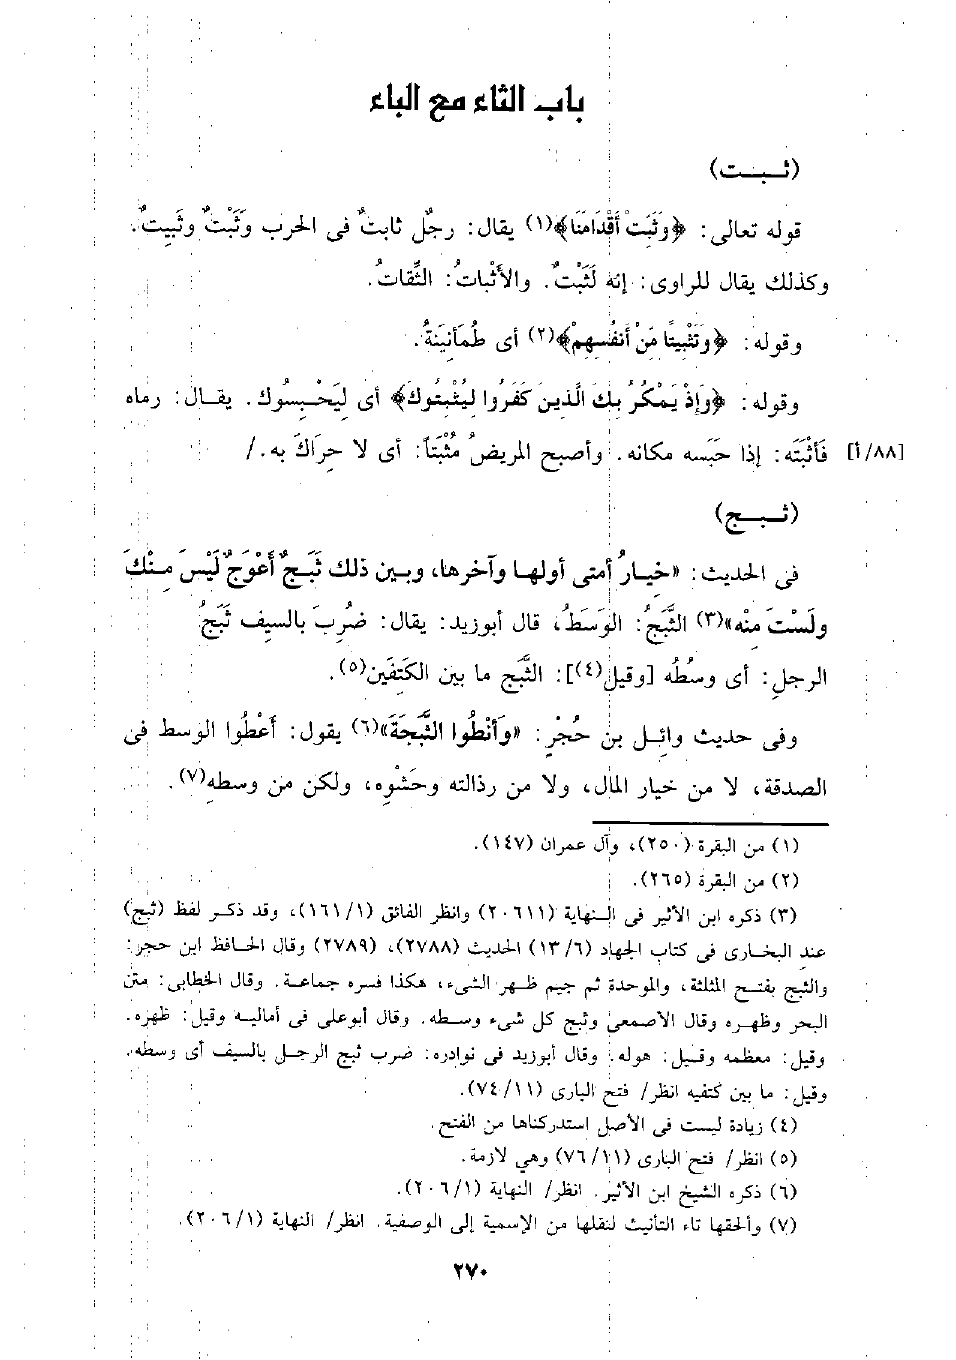 باب الثاء مع الباء
(ثـبـت)
قوله تعالى: ﴿وَثَبِّتْ أَقْدَامَنَا﴾(١) يقال: رجلٌ ثابتٌ فى الحرب وَثَبْتٌ وثَبِيتٌ.
وكذلك يقال للراوى: إنه لَثَبْتٌ. والأَثْباتُ: الثِّقاتُ.
وقوله: ﴿وَتَثْبِيتًا مِّنْ أَنفُسِهِمْ﴾(٢) أى طُمَأنِينَةُ.
وقوله: ﴿وَإِذْ يَمْكُرُ بِكَ الَّذِينَ كَفَرُوا لِيُثْبِتُوكَ﴾ أى لِيَحْبِسُوك. يقـال: رماه
[٨٨/أ] فَأَثْبَتَه: إذا حَبَسه مكانه. وأصبح المريضُ مُثْبَتاً: أى لا حِرَاكَ به./
(ثـبـج)
فى الحديث: «خيارُ أمتى أولهـا وآخرها، وبـين ذلك ثَبَـجٌ أَعْوَجٌ لَيْسَ مِـنْكَ
ولَسْتَ مِنْه»(٣) الثَّبَجُ: الوَسَطُ، قال أبوزيد: يقال: ضُرِبَ بالسيف ثَبَجُ
الرجلِ: أى وسُطُه [وقيل(٤)]: الثَّبَج ما بين الكَتِفَين(٥).
وفى حديث وائـل بن حُجْرٍ: «وَأَنْطُوا الثَّبَجَةَ»(٦) يقول: أَعْطُوا الوسط فى
الصدقة، لا من خيار المال، ولا من رذالته وحَشْوِه، ولكن من وسطه(٧).
(١) من البقرة (٢٥٠)، وآل عمران (١٤٧).
(٢) من البقرة (٢٦٥).
(٣) ذكره ابن الأثير فى الـنهاية (٢٠٦١١) وانظر الفائق (١٦١/١)، وقد ذكـر لفظ (ثبج)
عند البخـارى فى كتاب الجهاد (١٣/٦) الحديث (٢٧٨٨)، (٢٧٨٩) وقال الحـافظ ابن حجر:
والثبج بفتـح المثلثة، والموحدة ثم جيم ظـهر الشىء، هكذا فسره جماعـة. وقال الخطابى: متن
البحر وظهـره وقال الأصمعى وثبج كل شىء وسـطه. وقال أبوعلى فى أماليـه وقيل: ظهره.
وقيل: معظمه وقـيل: هوله. وقال أبوزيد فى نوادره: ضرب ثبج الرجـل بالسيف أى وسطه.
وقيل: ما بين كتفيه انظر/ فتح البارى (٧٤/١١).
(٤) زيادة ليست فى الأصل استدركناها من الفتح.
(٥) انظر/ فتح البارى (٧٦/١١) وهي لازمة.
(٦) ذكره الشيخ ابن الأثير. انظر/ النهاية (٢٠٦/١).
(٧) وألحقها تاء التأنيث لنقلها من الإسمية إلى الوصفية. انظر/ النهاية (٢٠٦/١).
٢٧٠